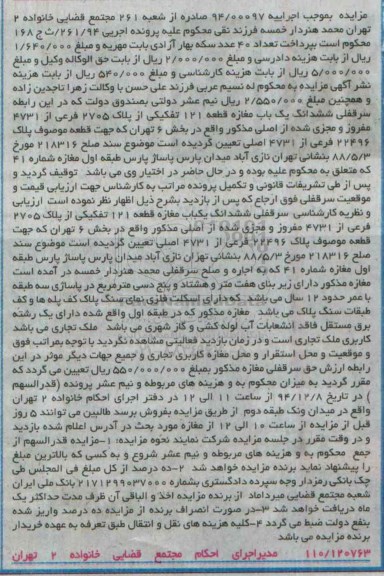 مزایده بموجب اجراییه ۹۴/۰۰۰۹۷ صادره از شعبه ۲۶۱ مجتمع قضایی خانواده ۲
تهران محمد هنردار خمسه فرزند نقی محکوم علیه پرونده اجرایی ۲۶۱/۹۴/ج ۱۶۸
محکوم است بپرداخت تعداد ۴۰ عدد سکه بهار آزادی بابت مهریه و مبلغ ۱/۶۴۰/۰۰۰
ریال از بابت هزینه دادرسی و مبلغ ۲/۰۰۰/۰۰۰ ریال از بابت حق الوکاله وکیل و مبلغ
۵/۰۰۰/۰۰۰ ریال از بابت هزینه کارشناسی و مبلغ ۵۴۰/۰۰۰ ریال از بابت هزینه
نشر آگهی مزایده به محکوم له نسیم عربی فرزند علی حسن با وکالت زهرا تاجدین زاده
و همچنین مبلغ ۲/۵۵۰/۰۰۰ ریال نیم عشر دولتی بصندوق دولت که در این رابطه
سرقفلی ششدانگ یک باب مغازه قطعه ۱۲۱ تفکیکی از پلاک ۲۷۰۵ فرعی از ۴۷۳۱
مفروز و مجزی شده از اصلی مذکور واقع در بخش ۶ تهران که جهت قطعه موصوف پلاک
۲۲۴۹۶ فرعی از ۴۷۳۱ اصلی تعیین گردیده است موضوع سند صلح ۲۱۸۳۱۶ مورخ
۸۸/۵/۳ بنشانی تهران نازی آباد میدان پارس پاساژ پارس طبقه اول مغازه شماره ۴۱
که متعلق به محکوم علیه بوده و در حال حاضر در اختیار وی می باشد توقیف گردید و
پس از طی تشریفات قانونی و تکمیل پرونده مراتب به کارشناس جهت ارزیابی قیمت و
موقعیت سرقفلی فوق ارجاع که پس از بازدید بشرح ذیل اظهار نظر نموده است ارزیابی
و نظریه کارشناسی سرقفلی ششدانگ یکباب مغازه قطعه ۱۲۱ تفکیکی از پلاک ۲۷۰۵
فرعی از ۴۷۳۱ مفروز و مجزی شده از اصلی مذکور واقع در بخش ۶ تهران که جهت
قطعه موصوف پلاک ۲۲۴۹۶ فرعی از ۴۷۳۱ اصلی تعیین گردیده است موضوع سند
صلح ۲۱۸۳۱۶ مورخ ۸۸/۵/۳ بنشانی تهران نازی آباد میدان پارس پاساژ پارس طبقه
اول مغازه شماره ۴۱ که به اجاره و صلح سرقفلی محمد هنردار خمسه در آمده است
مغازه مذکور دارای زیر بنای هفت متر و هشتاد و پنج دسی مترمربع در پاساژی سه طبقه
با عمر حدود ۱۲ سال می باشد که دارای اسکلت فلزی نمای سنگ پلاک کف پله ها و کف
طبقات سنگ پلاک می باشد مغازه مذکور که در طبقه اول واقع شده دارای یک رشته
برق مستقل فاقد انشعابات آب لوله کشی و گاز شهری می باشد ملک تجاری می باشد
کاربری ملک تجاری است و در زمان بازدید فعالیتی مشاهده نگردید با توجه بمراتب فوق
و موقعیت و محل استقرار و محل مغازه کاربری تجاری و جمیع جهات دیگر موثر در این
رابطه ارزش حق سرقفلی مغازه مذکور بمبلغ ۵۵۰/۰۰۰/۰۰۰ ریال تعیین می گردد که
مقرر گردید به میزان محکوم به و هزینه های مربوطه و نیم عشر پرونده (قدرالسهم
) در تاریخ ۹۴/۱۲/۸ از ساعت ۱۱ الی ۱۲ در دفتر اجرای احکام خانواده ۲ تهران
واقع در میدان ونک طبقه دوم از طریق مزایده بفروش برسد طالبین می توانند ۵ روز
قبل از مزایده از ساعت ۱۰ الی ۱۲ از مغازه مورد بحث در آدرس اعلام شده بازدید
و در وقت مقرر در جلسه مزایده شرکت نمایند نحوه مزایده: ۱-مزایده قدرالسهم از
جمع محکوم به و هزینه های مربوطه و نیم عشر شروع و به کسی که بالاترین مبلغ
را پیشنهاد نماید برنده مزایده خواهد شد ۲-ده درصد از کل مبلغ فی المجلس طی
چک بانکی رمزدار وجه سپرده دادگستری بشماره ۲۱۷۱۲۹۹۰۳۷۰۰۰ بانک ملی ایران
شعبه مجتمع قضایی میرداماد از برنده مزایده اخذ و الباقی آن ظرف مدت حداکثر یک
ماه دریافت خواهد شد ۳-در صورت انصراف برنده از مزایده ده درصد واریز شده
بنفع دولت ضبط می گردد ۴-کلیه هزینه های نقل و انتقال طبق تعرفه به عهده خریدار
برنده مزایده می باشد
۱۱۰/۱۲۰۷۶۳ مدیراجرای احکام مجتمع قضایی خانواده ۲ تهران